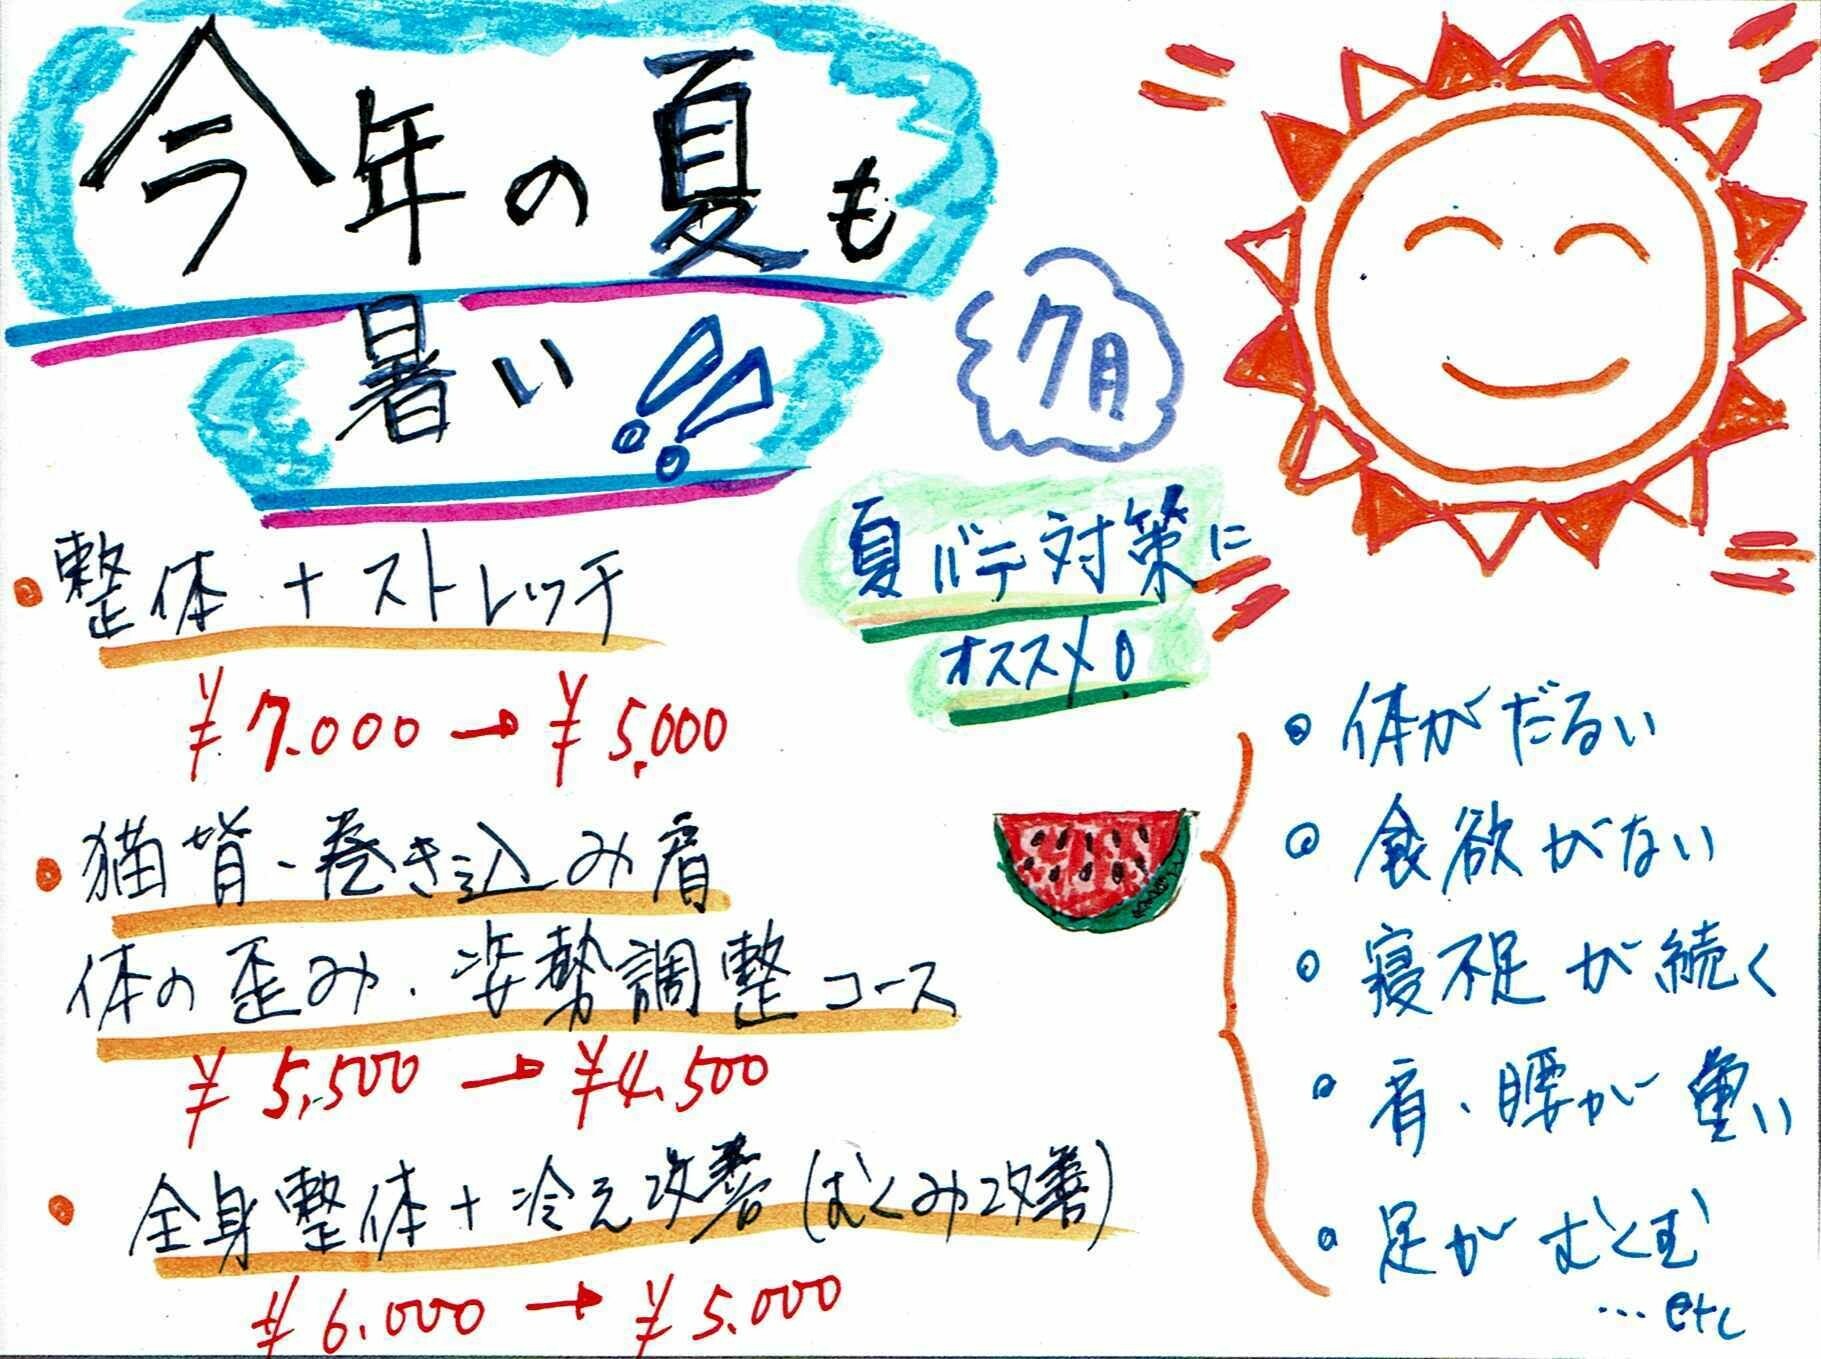 今年の夏も
暑い!!
7月
夏バテ対策に
オススメ!
・整体+ストレッチ
¥7,000→¥5,000
・猫背・巻き込み肩
体の歪み・姿勢調整コース
¥5,500→¥4,500
・全身整体+冷え改善(むくみ改善)
¥6,000→¥5,000
・体がだるい
・食欲がない
・寝不足が続く
・肩、腰が重い
・足がむくむ
…etc